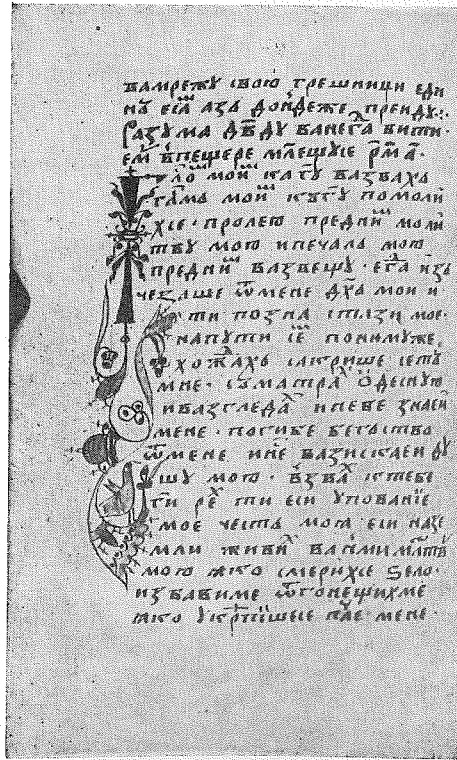 вамрежу свою грешници еди
нь есⷨа аза дондеже преиду:
Разума дв҃ду ванегⷣа бити
емꙋ впещере млещусе рм҃а·
Глѡ моиⷨ кагꙋ вазваха
глⷭма моиⷨ къгꙋ помоли
хсе · пролею предниⷨ моли
тву мою ипечала мою
предниⷨ вазвещу · егⷣа иза
чезаше ѿмене дх҃а мои и
ти позна стьзи мое·
напути сеⷨ понимуже,
хождⷣаха сакрише сета
мне · сьматраⷯ ѡдесную
ивазгледаⷯ инебе знаеи
мене · погибе бегство
ѿмене ине вазискаеи дꙋ
шу мою · взваⷯ ктебе
ги реⷯ ти еси упованїе
мое честа моꙗ еси назе
мли живиⷯ ванми млтвꙋ
мою ꙗко смерихсе ѕело·
избавиме ѿгонещихме
ꙗко укрпїшесе паⷱе мене·